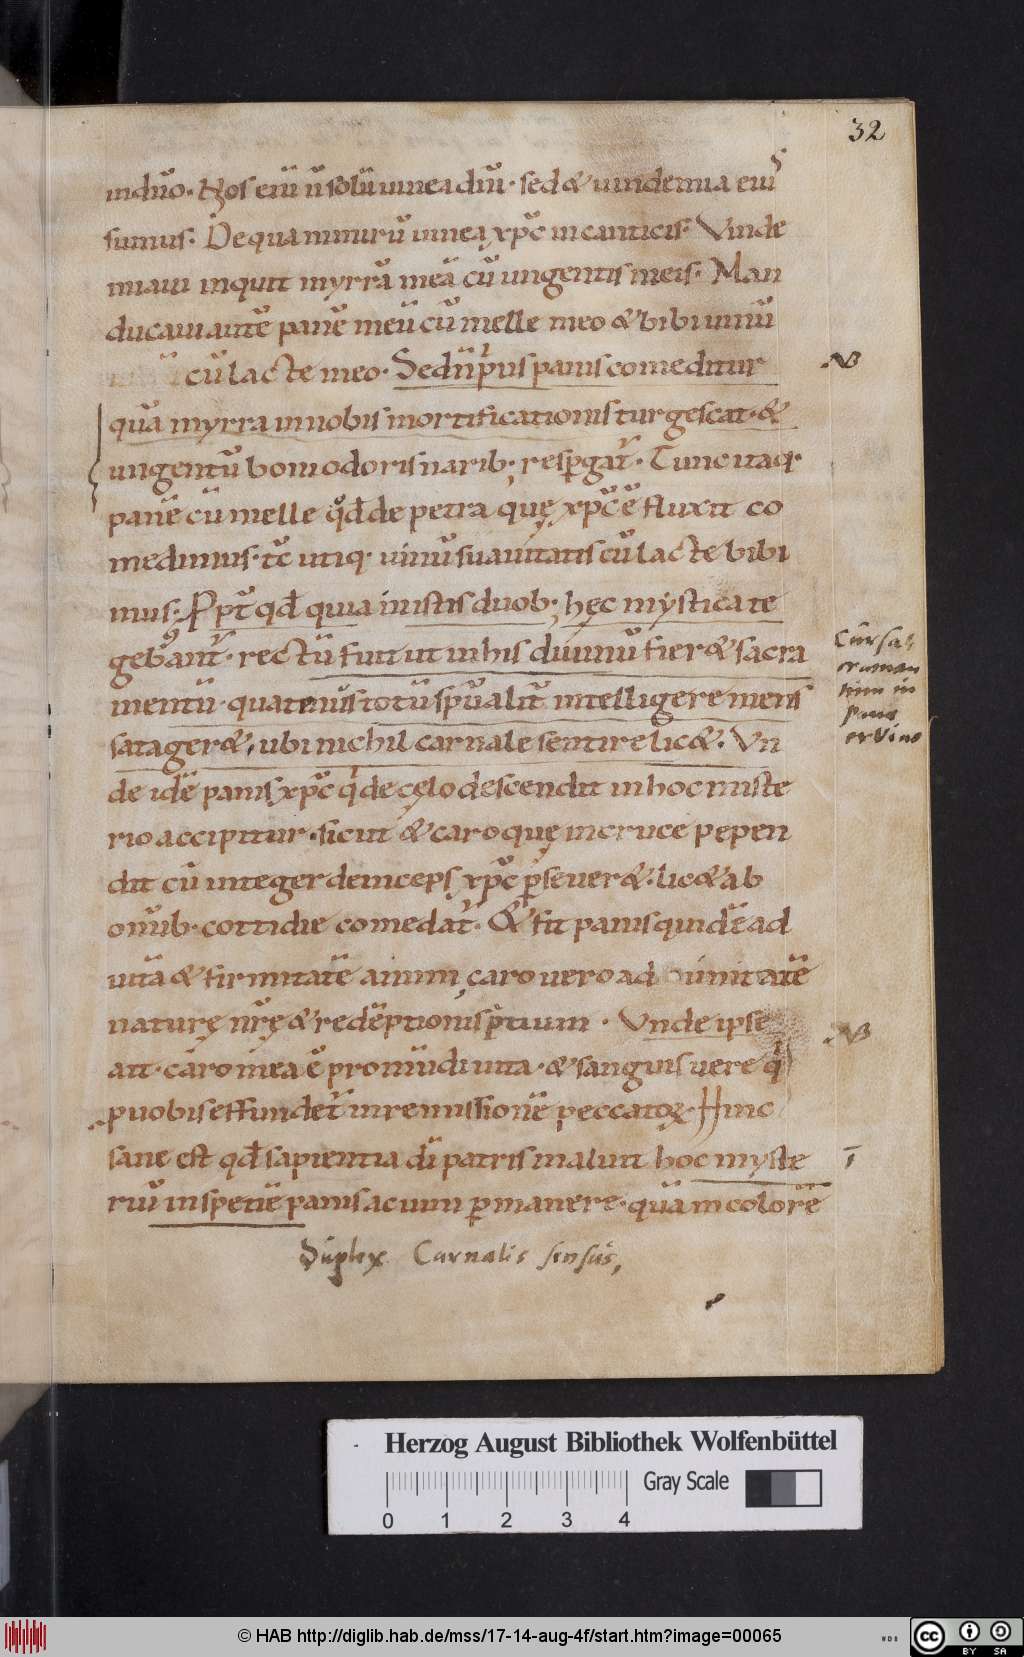 32
induo. Nos enī n̄ solū vinea dn̄i. sed & uindemia eius
sumus. De qua nimirū vinea xp̄c in canticis. Vinde
miaui inquit myrrā meā cū ungentis meis. Man
ducaui autē panē meū cū melle meo & bibi uinū
cū lacte meo. Sed n̄ prius panis comeditur
NB
quā myrra in nobis mortificationis turgescat. &
ungentū boni odoris narib; respgat̄. Tunc itaq.
panē cū melle qđ de petra quę xp̄c ē fluxit co
medimus. tc̄ utiq. uinū suauitatis cū lacte bibi
mus. Ppt̄ qđ quia in istis duob; hęc mystica te
gebant̄. rectū fuit ut in his diuinū fier& sacra
Cur sac
ramen
tum in
pane
et vino
mentū. quatenus totū spūalit̄ intelligere mens
satager&, ubi nichil carnale sentire lic&. Vn
de idē panis xp̄c qi de cęlo descendit in hoc miste
rio accipitur. sicut & caro quę in cruce pepen
dit cū integer deinceps xp̄c pseuer&. lic& ab
om̄ib. cottidie comedat̄. & fit panis quidē ad
uitā & firmitatē animę, caro uero ad unitatē
naturę nr̄ę & redēptionis ptium. Vnde ipse
NB
ait. caro mea ē pro mūdi uita. & sanguis uere qi
p uobis effundet̄ in remissionē peccatoꝝ. Hinc
sane est qđ sapientia dī patris maluit hoc myste
riū in spetiē panis ac uini pmanere. quā in colorē
Duplex Carnalis sensus,
Herzog August Bibliothek Wolfenbüttel
Gray Scale
0 1 2 3 4
© HAB http://diglib.hab.de/mss/17-14-aug-4f/start.htm?image=00065
WDB
cc BY SA